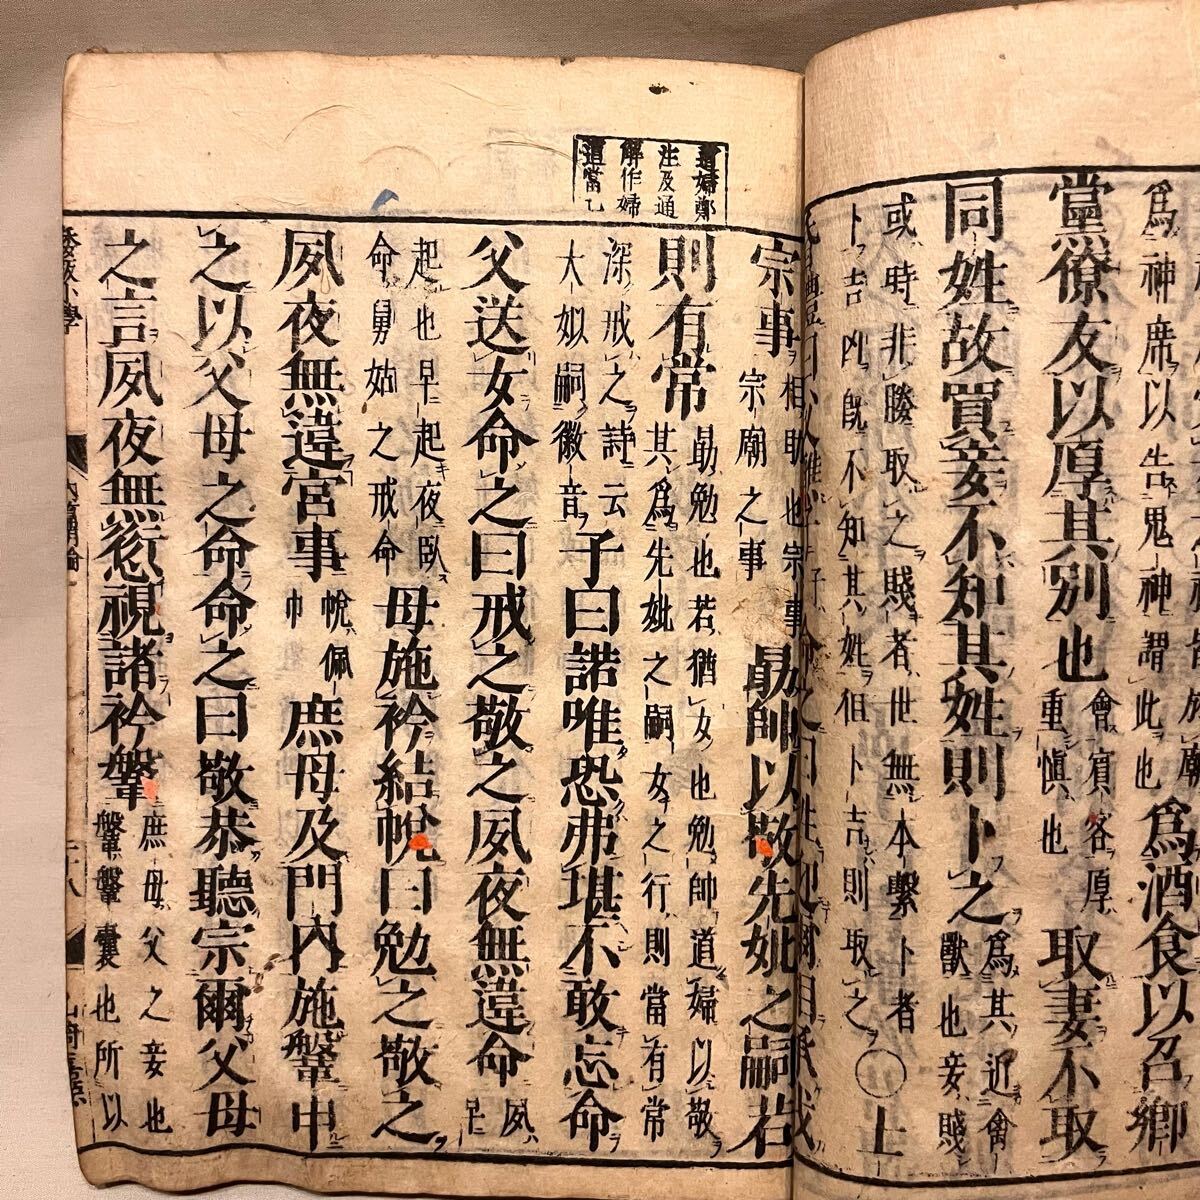 爲神席以告鬼神謂此也
爲酒食以召鄉
黨僚友以厚其別也
會賓客厚
重慎也
取妻不取
同姓故買妾不知其姓則卜之
爲其近禽
獸也妾賤
或時非媵取之賤者世無本繫卜者
卜吉凶既不知其姓但卜吉則取之〇
上
道婦鄭
注及通
解作婦
道當乙
宗事
相助也宗事
宗廟之事
勗帥以敬先妣之嗣若
則有常
勗勉也若猶女也勉帥道婦以敬
其爲先妣之嗣女之行則當有常
深戒之詩云
大姒嗣徽音
子曰諾唯恐弗堪不敢忘命
父送女命之曰戒之敬之夙夜無違命
夙
早
起也早起夜臥
命舅姑之戒命
母施衿結帨曰勉之敬之
夙夜無違宮事
帨佩
巾
庶母及門內施鞶申
之以父母之命命之曰敬恭聽宗爾父母
之言夙夜無愆視諸衿鞶
庶母父之妾也
鞶鞶囊也所以